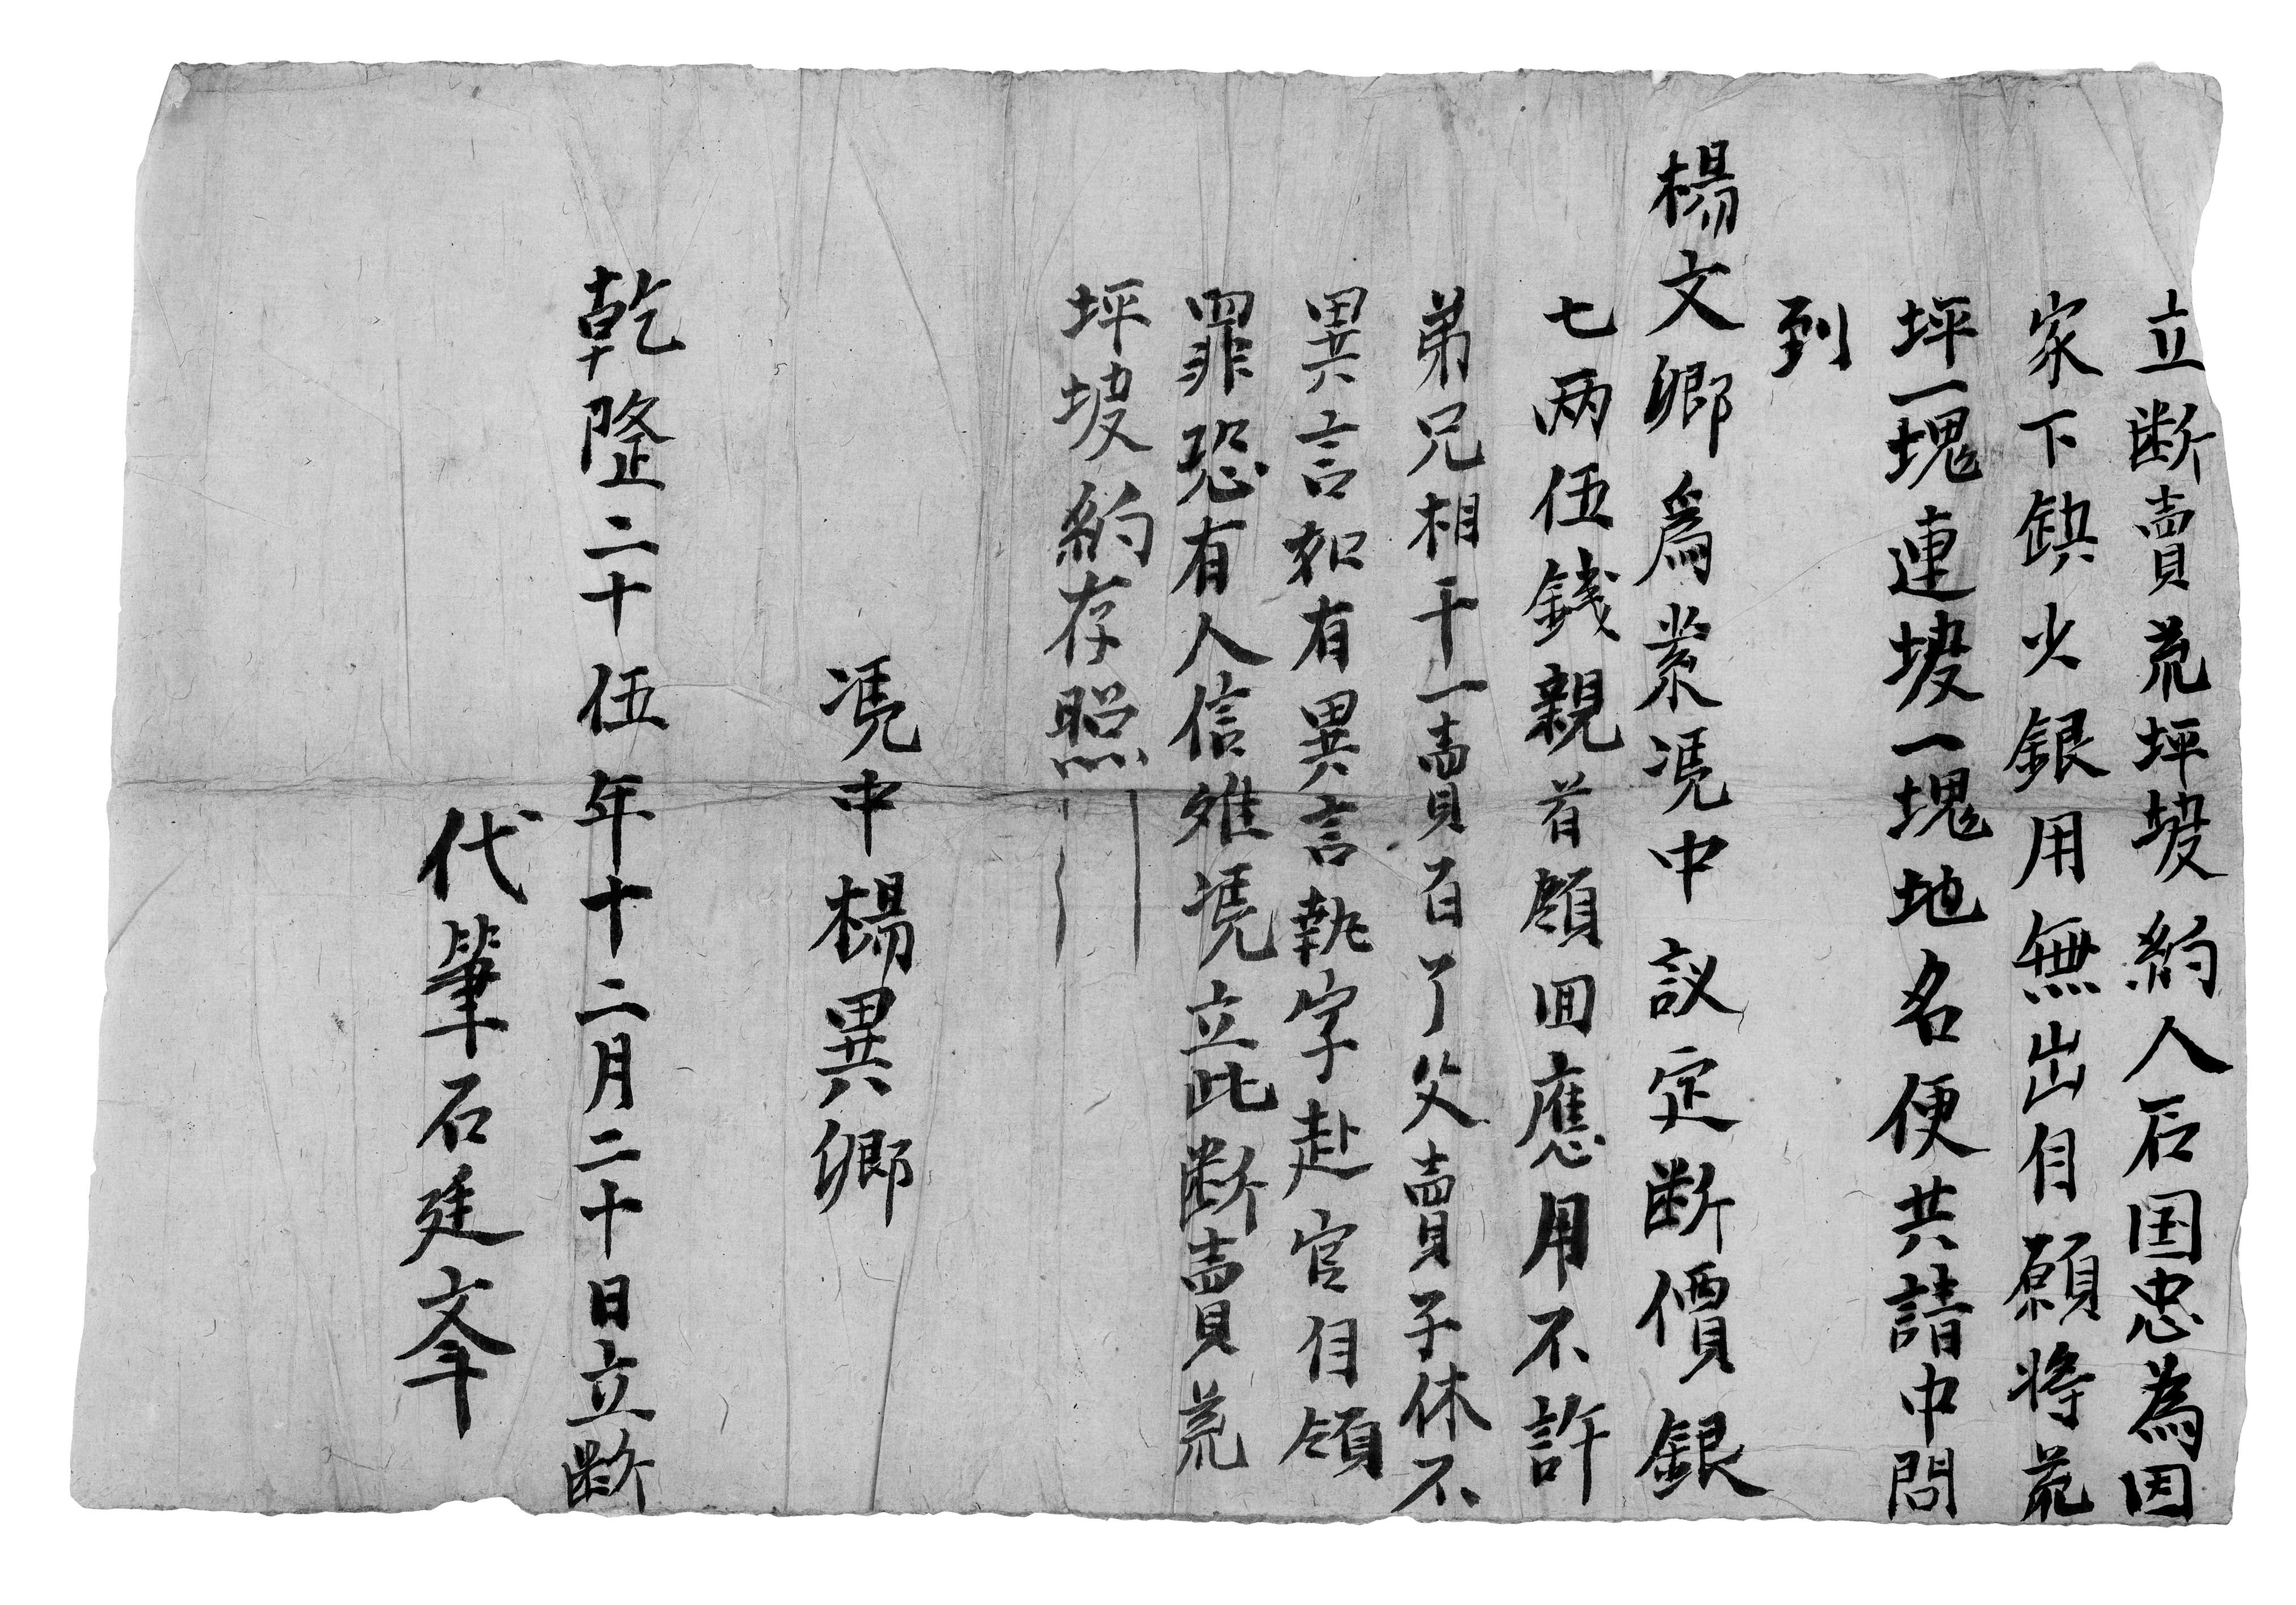 立断賣荒坪坡約人石国忠為因
家下缺少銀用無出自願将荒
坪一塊連坡一塊地名便共請中問
到
楊文鄉爲業凴中議定断價銀
七两伍錢親首領囬應用不許
弟兄相干一賣百了父賣子休不
異言如有異言執字赴官自領
罪恐有人信难凴立此断賣荒
坪坡約存照
凴中楊異鄉
乾隆二十伍年十二月二十日立断
代筆石廷文